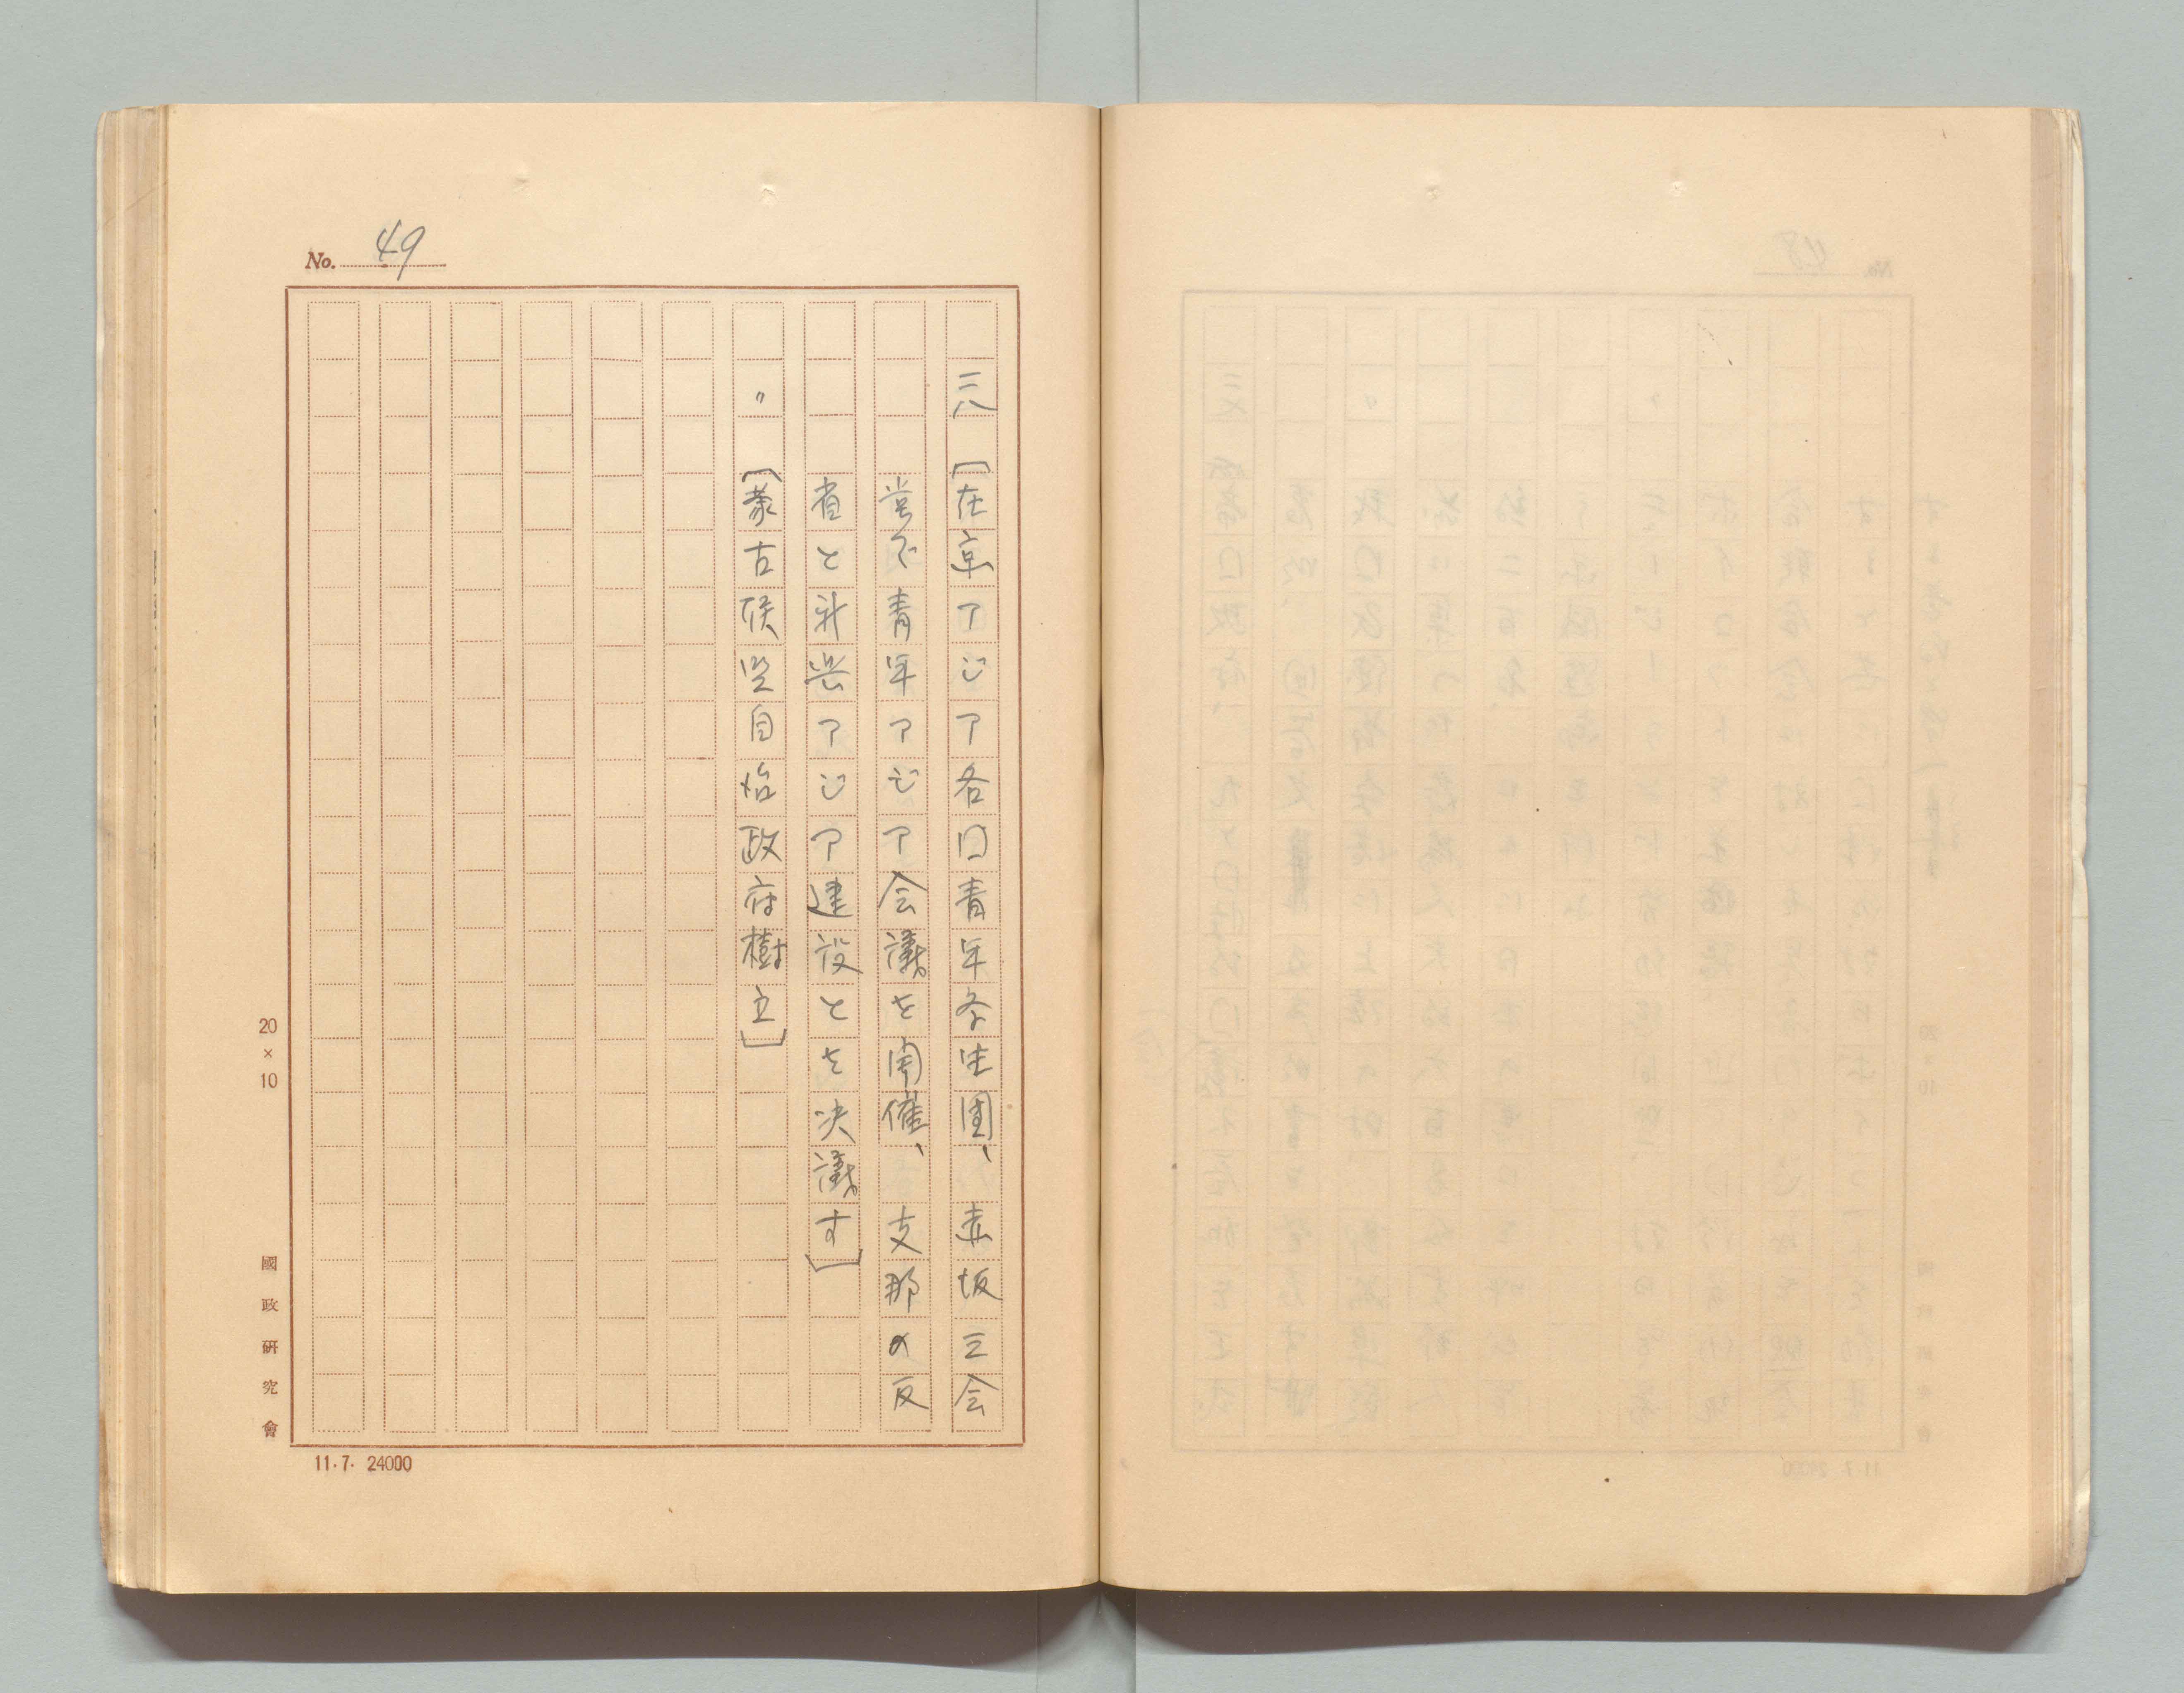 No. 49
二八 [在京アジア各国青年学生団、赤坂三会
堂で青年アジア会議を開催、支那の反
省と新興アジア建設とを決議す]
〃 [蒙古候 自治政府樹立]
20×10
國政研究會
11.7. 24000